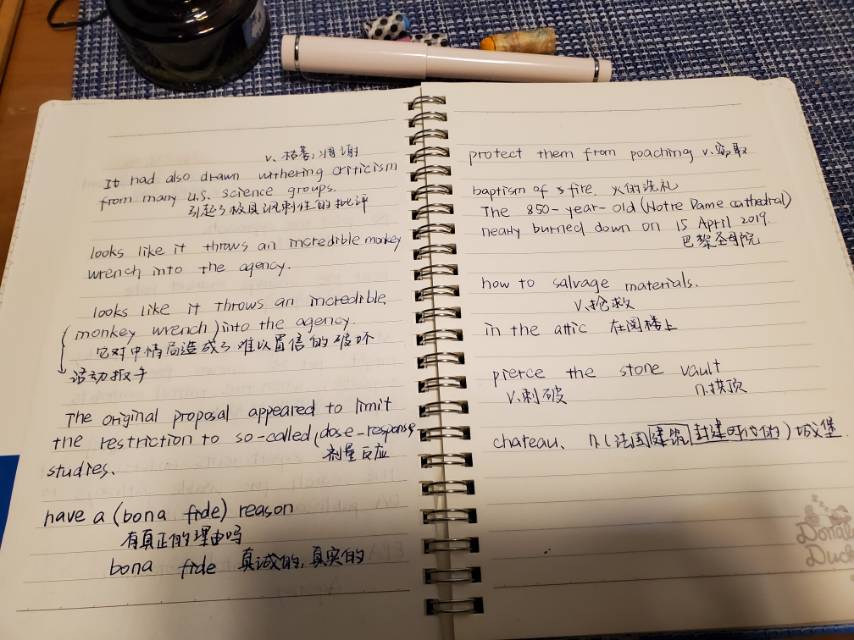 v. 枯萎,凋谢
It had also drawn withering criticism
from many U.S. science groups.
引起了极具讽刺性的批评
looks like it throws an incredible monkey
wrench into the agency.
looks like it throws an incredible
(monkey wrench) into the agency.
它对中情局造成了难以置信的破坏
活动扳手
The original proposal appeared to limit
the restriction to so-called (dose-response
studies.
剂量反应
have a (bona fide) reason
有真正的理由吗
bona fide 真诚的,真实的
protect them from poaching v.窃取
baptism of fire. 火的洗礼
The 850-year-old (Notre Dame cathedral)
nearly burned down on 15 April 2019.
巴黎圣母院
how to salvage materials.
v.抢救
in the attic 在阁楼上
pierce the stone vault
v.刺破 n.拱顶
chateau. n.(法国建筑封建时代的)城堡
Donald
Duck